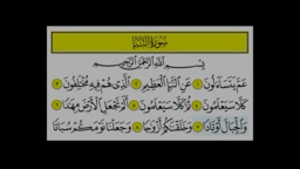 سورة النبإ
بسم الله الرحمن الرحيم
عم يتساءلون ١ عن النبإ العظيم ٢ الذى هم فيه مختلفون ٣
كلا سيعلمون ٤ ثم كلا سيعلمون ٥ ألم نجعل الأرض مهدا ٦
والجبال أوتادا ٧ وخلقنكم أزوجا ٨ وجعلنا نومكم سباتا